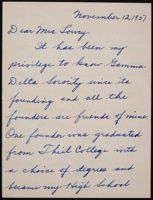 November 12, 1951
Dear Mrs Lowry
It has been my
privilege to know Gamma
Delta Sorority since its
founding and all the
founders are friends of mine.
One founder was graduated
from Thiel College with
a choice of degrees and
became my High School